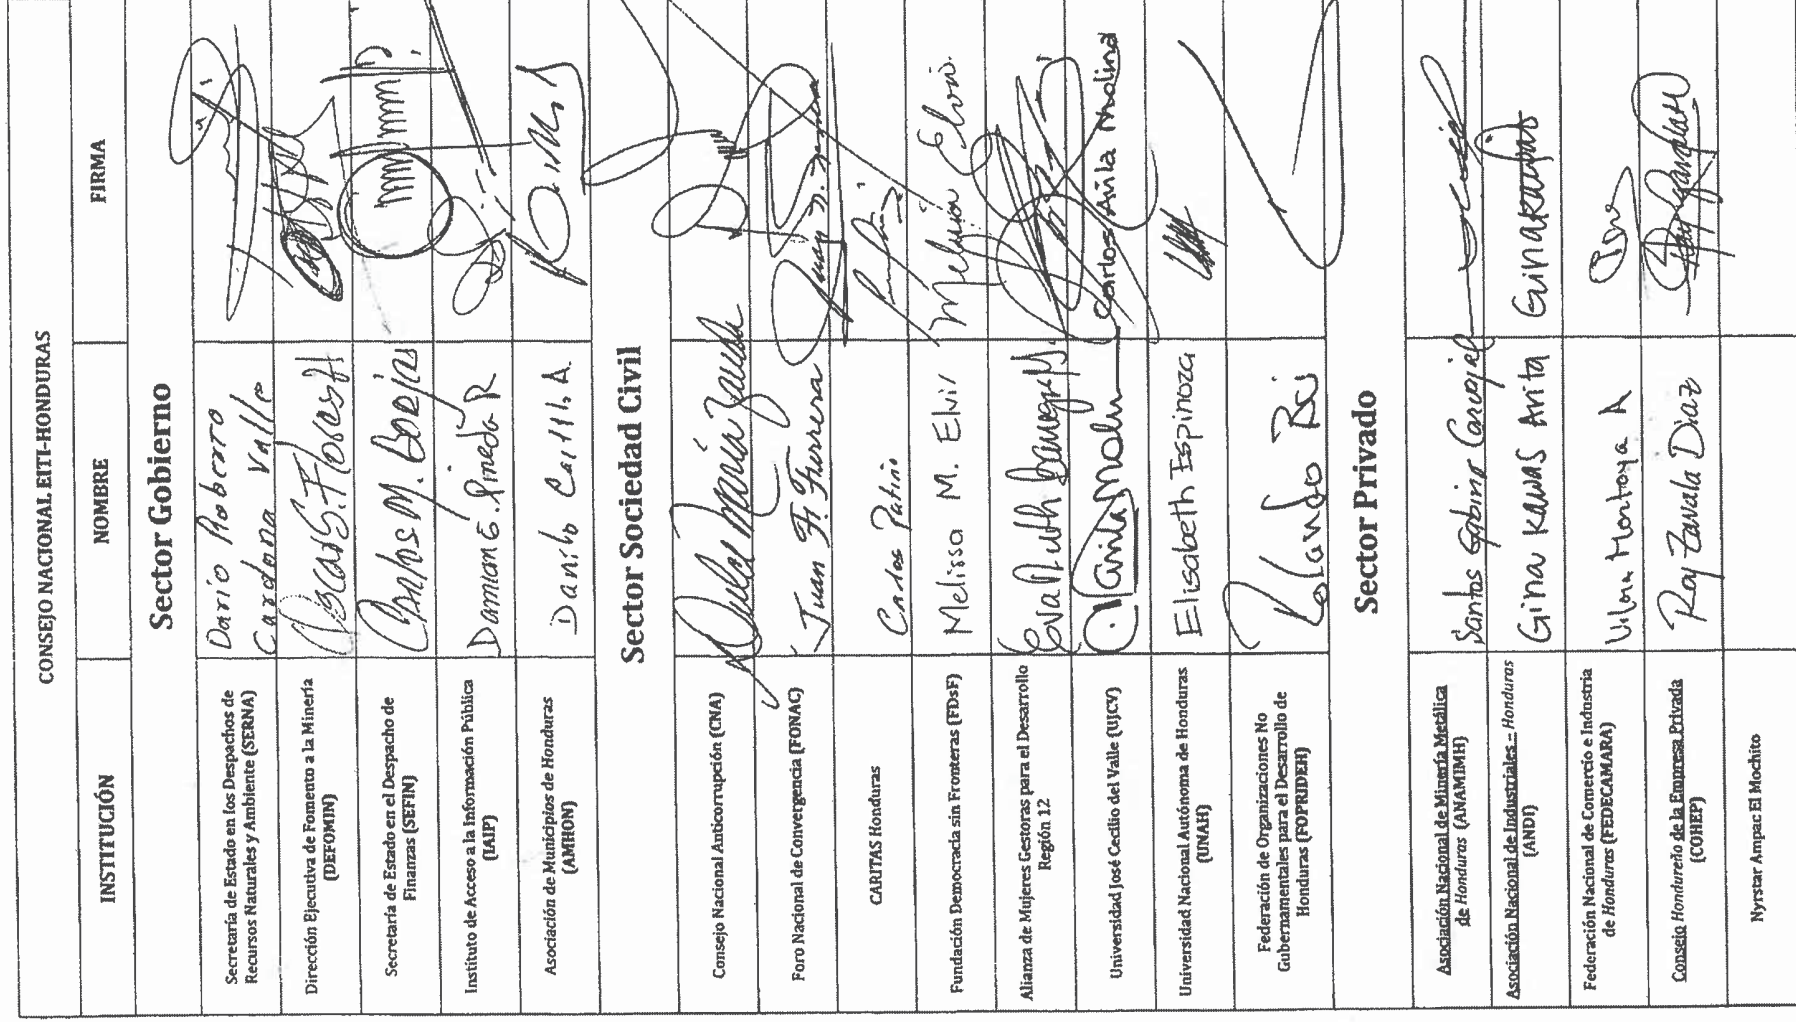 CONSEJO NACIONAL EITI-HONDURAS
INSTITUCIÓN NOMBRE FIRMA
Sector Gobierno
Secretaría de Estado en los Despachos de
Recursos Naturales y Ambiente (SERNA)
Dario Roberto
Cardona Valle
Dirección Ejecutiva de Fomento a la Minería
(DEFOMIN)
Secretaría de Estado en el Despacho de
Finanzas (SEFIN)
Carlos M. Borjas
Instituto de Acceso a la Información Pública
(IAIP)
Damian G. Pineda R
Asociación de Municipios de Honduras
(AMHON)
Danilo Carillo A.
Sector Sociedad Civil
Consejo Nacional Anticorrupción (CNA)
Dulce María Zavala
Foro Nacional de Convergencia (FONAC)
Juan F. Ferrera
CARITAS Honduras
Carlos Patiño
Fundación Democracia sin Fronteras (FDsF)
Melissa M. Elvir
Melissa Elvir.
Alianza de Mujeres Gestoras para el Desarrollo
Región 12
Eva Ruth
Universidad José Cecilio del Valle (UJCV)
C. Avila Molina
Carlos Avila Molina
Universidad Nacional Autónoma de Honduras
(UNAH)
Elisabeth Espinoza
Federación de Organizaciones No
Gubernamentales para el Desarrollo de
Honduras (FOPRIDEH)
Rolando
Sector Privado
Asociación Nacional de Minería Metálica
de Honduras (ANAMIMH)
Santos Gabino Carvajal
Asociación Nacional de Industriales – Honduras
(ANDI)
Gina Kawas Arita
Gina Kawas
Federación Nacional de Comercio e Industria
de Honduras (FEDECAMARA)
Vilma Montoya A
Consejo Hondureño de la Empresa Privada
(COHEP)
Roy Zavala Diaz
Nyrstar Ampac El Mochito